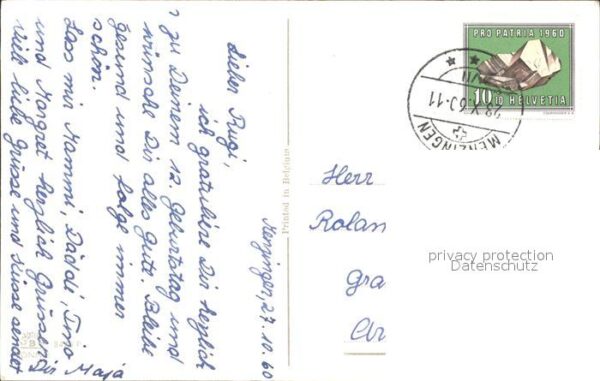 Menzingen, 27.10.60
Lieber Rugi,
ich gratuliere Dir herzlich
zu Deinem 12. Geburtstag und
wünsche Dir alles Gute. Bleibe
gesund und folge immer
schön.
Lass mir Mammi, Däddi, Timo
und Margret herzlich Grüssen
viele liebe Grüsse und Küsse sendet
Dir Maja
Printed in Belgium
PRO PATRIA 1960
10+10 HELVETIA
MENZINGEN
Herr
Rolan
Gra
Ar
privacy protection
Datenschutz